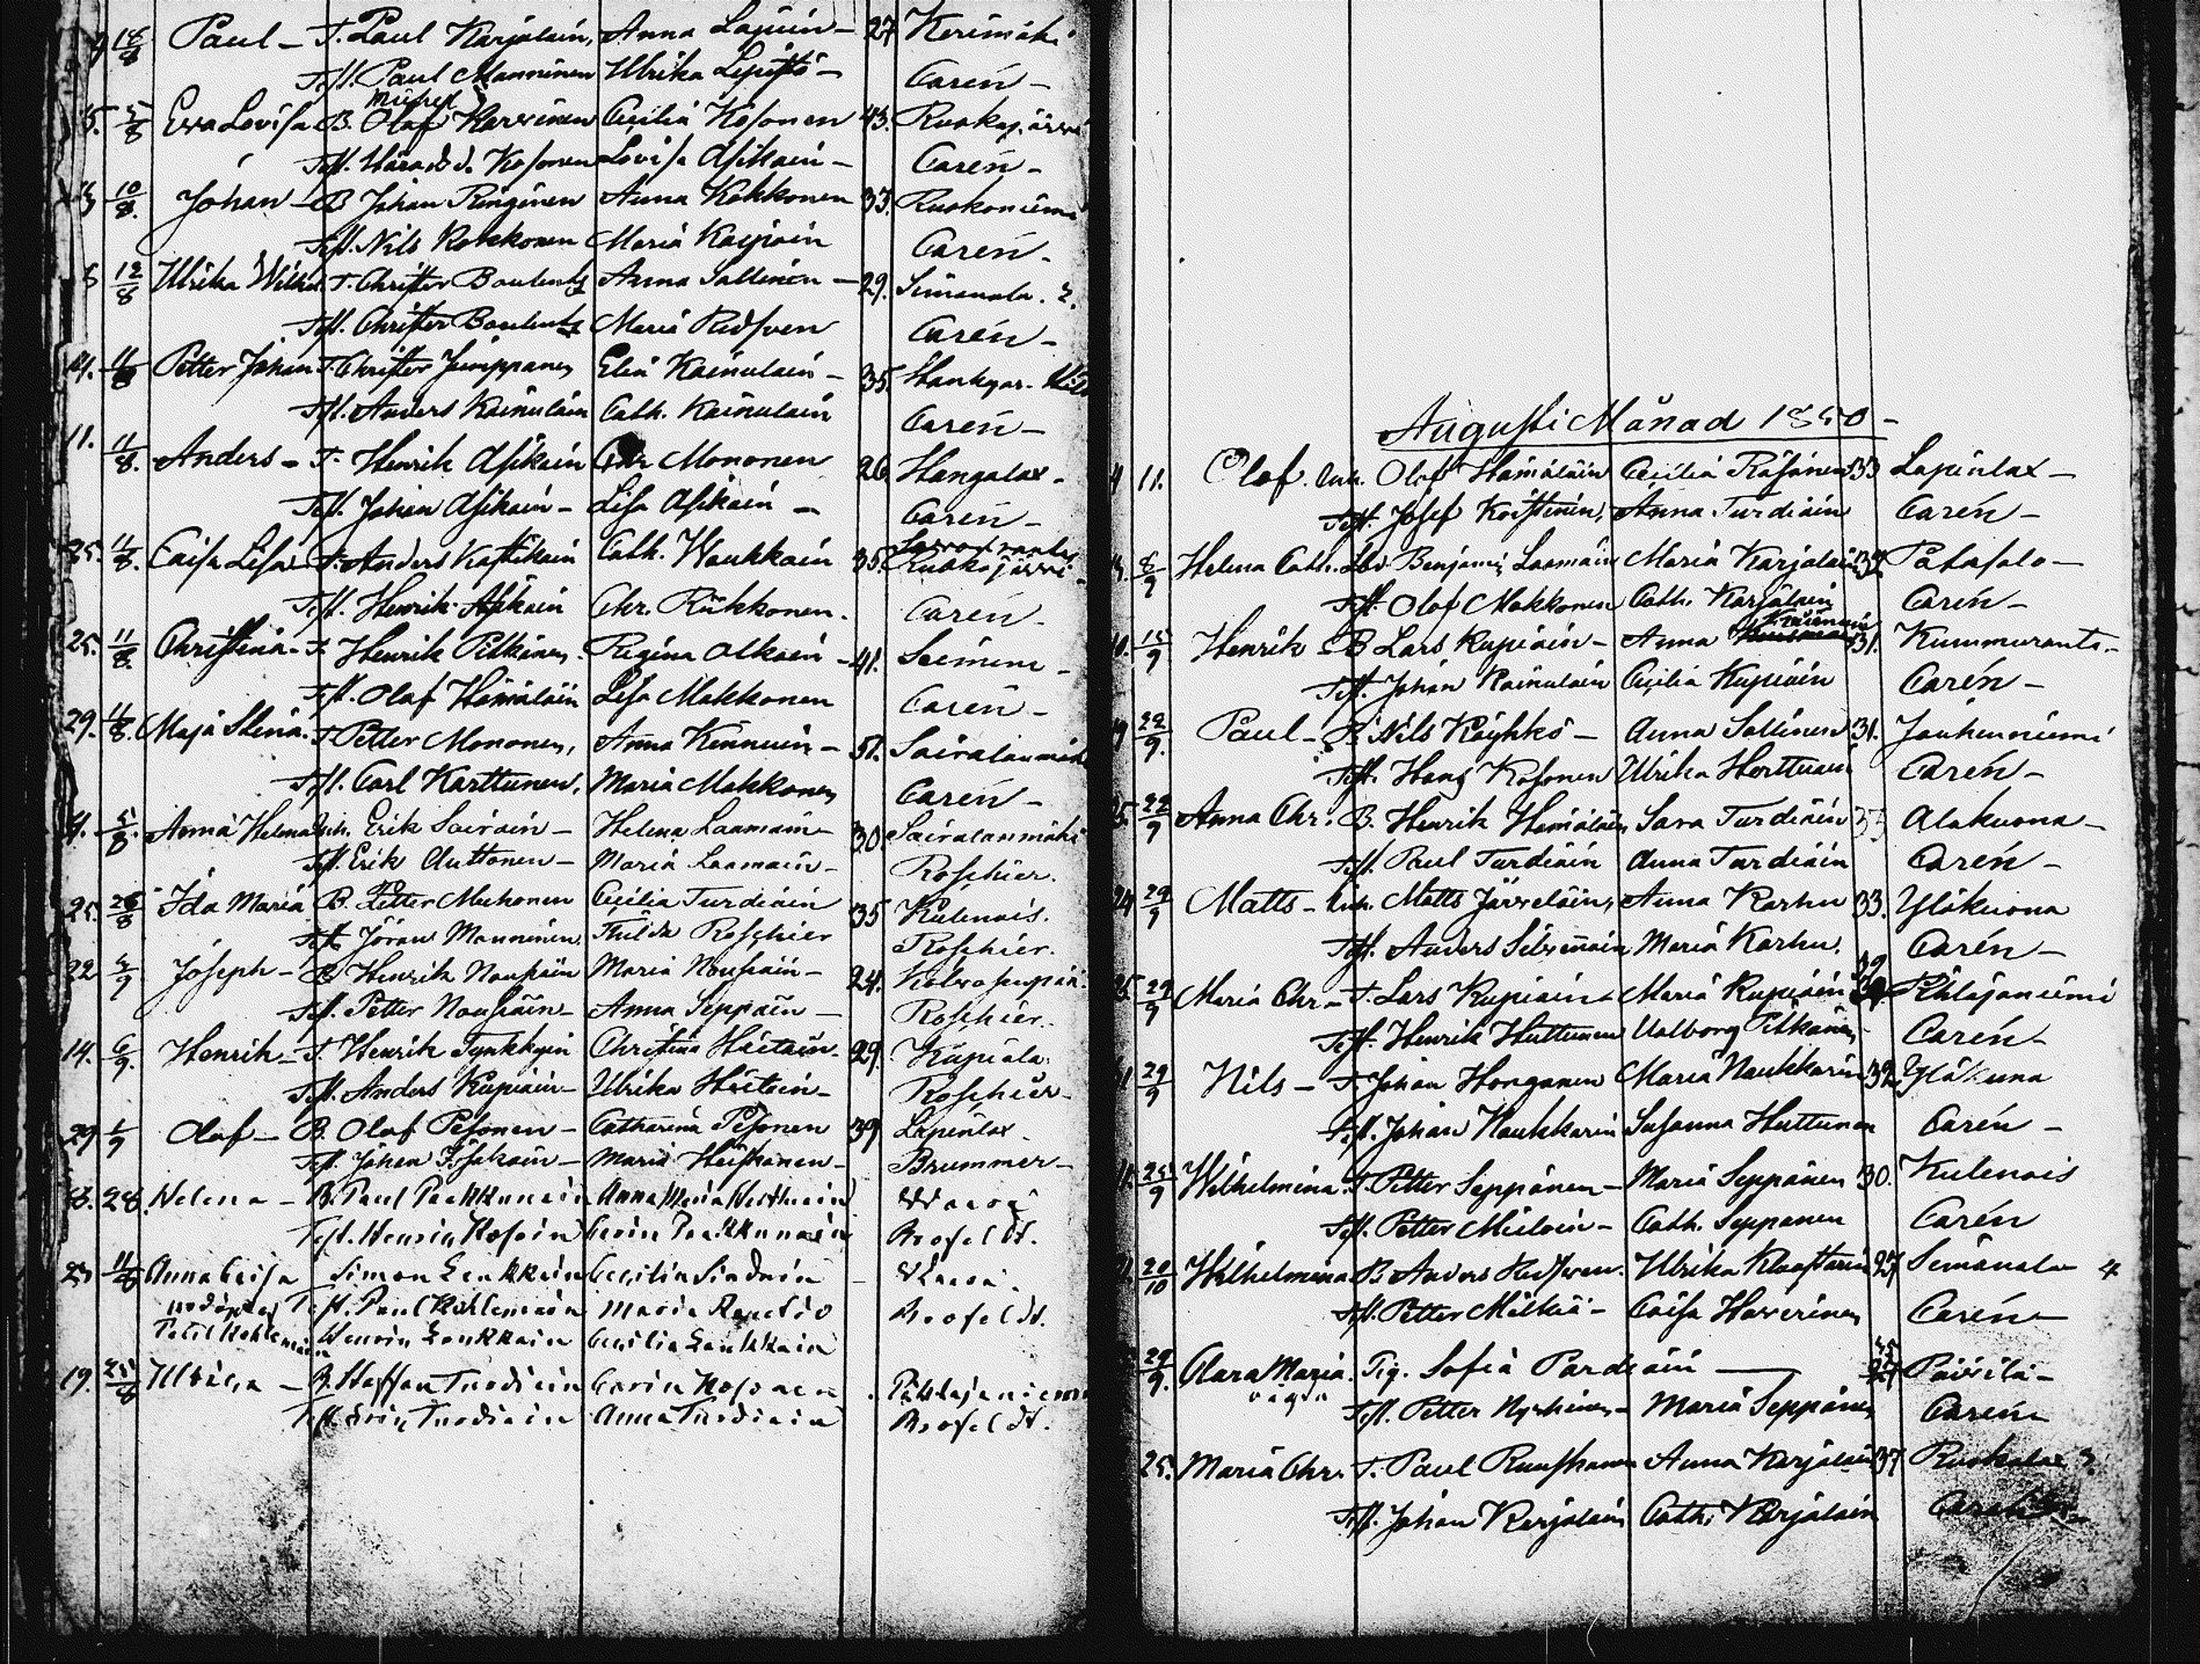 18/8 Paul - T. Paul Karjalain, Anna Lapuin - 27 Kerimäki
Test. Paul Manninen Ulrika Lipusti - Carén -
Michel
5. 5/8 Eva Lovisa B. Olof Karvinen Cecilia Kosonen 43. Ruokojärvi
Test. Kosonen Lovisa Asikain - Carén -
10/8. Johan - B Johan Ringinen Anna Kokkonen 33. Ruokoniemi
Test. Nils Kokkonen Maria Karjain Carén -
12/8 Ulrika Wilhel. T. Christer Boulentz Anna Sallinen - 29. Simanala. 2.
Test. Christer Boulentz Maria Redsven Carén -
11/8 Petter Johan T. Christer Jumppanen Elin Kainulain - 35.
Test. Anders Kainulain Cath. Kainulain Carén -
11. 11/8. Anders - T. Henrik Asikain Chr Mononen 26. Hangalax -
Test. Johan Asikain - Lisa Asikain - Carén -
25. 11/8. Caisa Lisa - T. Anders Cath. Waukkain 35.
Test. Henrik Asikain Chr. Rükkonen. Carén -
25. 11/8. Christina - T Henrik Pitkänen Regina Olkain - 41.
Test. Olof Hämäläin Lisa Makkonen Carén -
29. 11/8. Maja Stena. T Petter Mononen, Anna Kinnuin - 51. Sairalanmäki
Test. Carl Karttunen, Maria Makkonen Carén -
4. 5/8. Anna Helena Inh. Erik Sairain - Helena Laamain - 30. Sairalanmäki
Test. Erik Auttonen - Maria Laamain - Roschier.
25. 25/8 Ida Maria B. Petter Muhonen Cecilia Turdiain 35 Kulennois.
Test. Jöran Manninen. Thilda Roschier Roschier.
22 Joseph - B Henrik Nousiain Maria Nousiain - 24.
Test. Petter Nousiain - Anna Seppäin - Roschier.
14. 6/9. Henrik - T. Henrik Tynkkyin Christina Hietain - 29. Kupiala.
Test. Anders Kupiain - Ulrika Hietain - Roschier -
29 1/9 Olof - B. Olof Pesonen - Catharina Pesonen 39 Lapinlax -
Test. Johan Maria Heiskanen - Brummer -
8. 28. Helena - B. Paul Paukkunain Anna Maria
Test. Henric Kosoin Carin Paukkunain Brofeldt.
11/8 Anna Caisa Simon Laukkain Cecilia Sindoin -
nödöpt af Test. Paul Kohlemain Maria Brofeldt.
Petter Kohlemain Henric Laukkain Cecilia Laukkain
19. 25/8 Ulrica - B. Staffan Turdiain Carin Kosonen Pihlajaniemi
Test. Eric Turdiain Anna Turdiain Brofeldt.
Augusti Månad 1850 -
4 11. Olof. Inh. Olof Hämäläin Cecilia Räsänen 33 Lapinlax -
Test. Josef Koistinen, Anna Turdiain Carén -
8/9 Helena Cath. Lbd Benjamin Laamain Maria Karjalain 32 Pätäsalo -
Test. Olof Makkonen Cath. Karjalain Carén -
10. 15/9 Henrik - B Lars Kupiain - Anna 31. Kummuranta -
Test. Johan Kainulain Cecilia Kupiain Carén -
19 22/9. Paul - B Nils Röyhkö - Anna Sallinen 31. Jouhenniemi
Test. Hans Kosonen Ulrika Herttuain Carén -
22/9 Anna Chr. B. Henrik Hämäläin Sara Turdiain 33 Alakuona -
Test. Paul Turdiain Anna Turdiain Carén -
24 29/9 Matts - Inh. Matts Järveläin, Anna Karhu 33. Yläkuona
Test. Anders Silvennoin Maria Karhu. Carén -
25. 29/9 Maria Chr - T. Lars Kupiain - Maria Kupiain 39 Pihlajaniemi
Test. Henrik Huttunen Valborg Pitkänen - Carén -
29/9 Nils - T. Johan Honganen Maria Naukkarin 32. Yläkuna
Test. Johan Naukkarin Susanna Huttunen Carén -
25/9 Wilhelmina. T. Petter Seppänen - Maria Seppänen 30. Kulennois
Test. Petter Mieloin - Cath. Seppänen Carén
20/10 Wilhelmina B. Anders Redsven. Ulrika Klaastarin 27 Simanala 4
Test. Petter Mielkiä - Caisa Haverinen Carén -
29/9. Clara Maria. Pig. Sofia Pardiain - Päivilä -
oägta Test. Petter Nyrhinen - Maria Seppänen Carén -
25. Maria Chr. T. Paul Ruuskanen Anna Karjalain 37 Ruokolax ?
Test. Johan Karjalain Cath. Karjalain